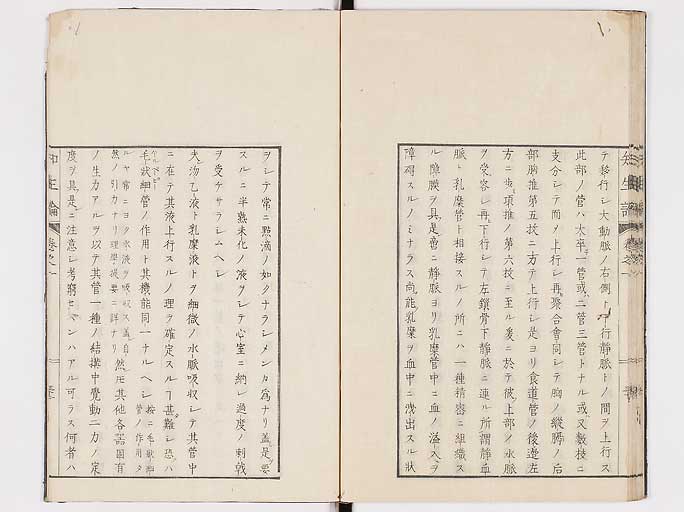 テ移行シ大動脈ノ右側ト行静脈トノ間ヲ上行ス
此部ノ管ハ大卒一管或二管三管トナル或又数枝ニ
支分シテ而メ上行シ再聚合會同シテ胸ノ縦膈ノ后
部胸推第五枚ニ方テ上行シ是ヨリ食道管ノ後邊左
方ニ歩項推ノ第六枚ニ至ル爰ニ於テ彼上部ノ水脈
ヲ受容シ再下行シテ左鎖骨下静脈ニ連ル所謂静血
脈ト乳糜管ト相接スルノ所ニハ一種精密ニ組織ス
ル障膜ヲ具是曽ニ静脈ヨリ乳糜管中ニ血ノ溢入ヲ
障碍スルノミナラス尚能乳糜ヲ血中ニ洩出スル状
ヲシテ常ニ點滴ノ如クナラシメンカ為ナリ蓋是要
スルニ半熟未化ノ液ヲシテ心室ニ納レ過度ノ刺戟
ヲ受ケサラシムヘシ
夫泌乙液ト乳糜液トヲ細微ノ水脈吸収シテ其管中
ニ在テ其液上行スルノ理ヲ確定スルヿ甚難シ恐ハ
毛状細管ノ作用ト其機能同一ナルヘシ
按ニ毛状細管ノ作用タ
ルヤ常ニヨク水液ヲ吸収ス蓋自然ノ引力ナリ理學提要ニ詳ナリ
然㆑𪜈其他各器固有
ノ生力アルヲ以テ其管一種ノ結搆中覺動二力ノ定
度ヲ具是ニ注意シ考窮セサンハアル可ラス何者ハ
知生論
卷之一